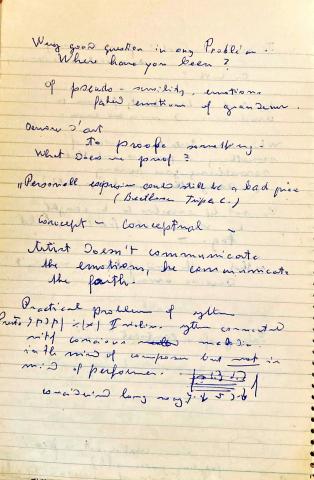 Very good question in any Problem.
Where have you been?
Of pseudo - sensibility, emotions
faked emotions of grandeur.
Oeuvre d'art
to proofe something -
What does we proof?
"Personall expression could still be a bad piece
(Beethoven Triple C.)
Concept - Conceptual -
Artist Doesn't communicate
the emotions, he communicate
the faith.
Practical problem of rythm
II violin. rythm connected
with concious melodic
in the mind of composer but not in
mind of performer.
long way